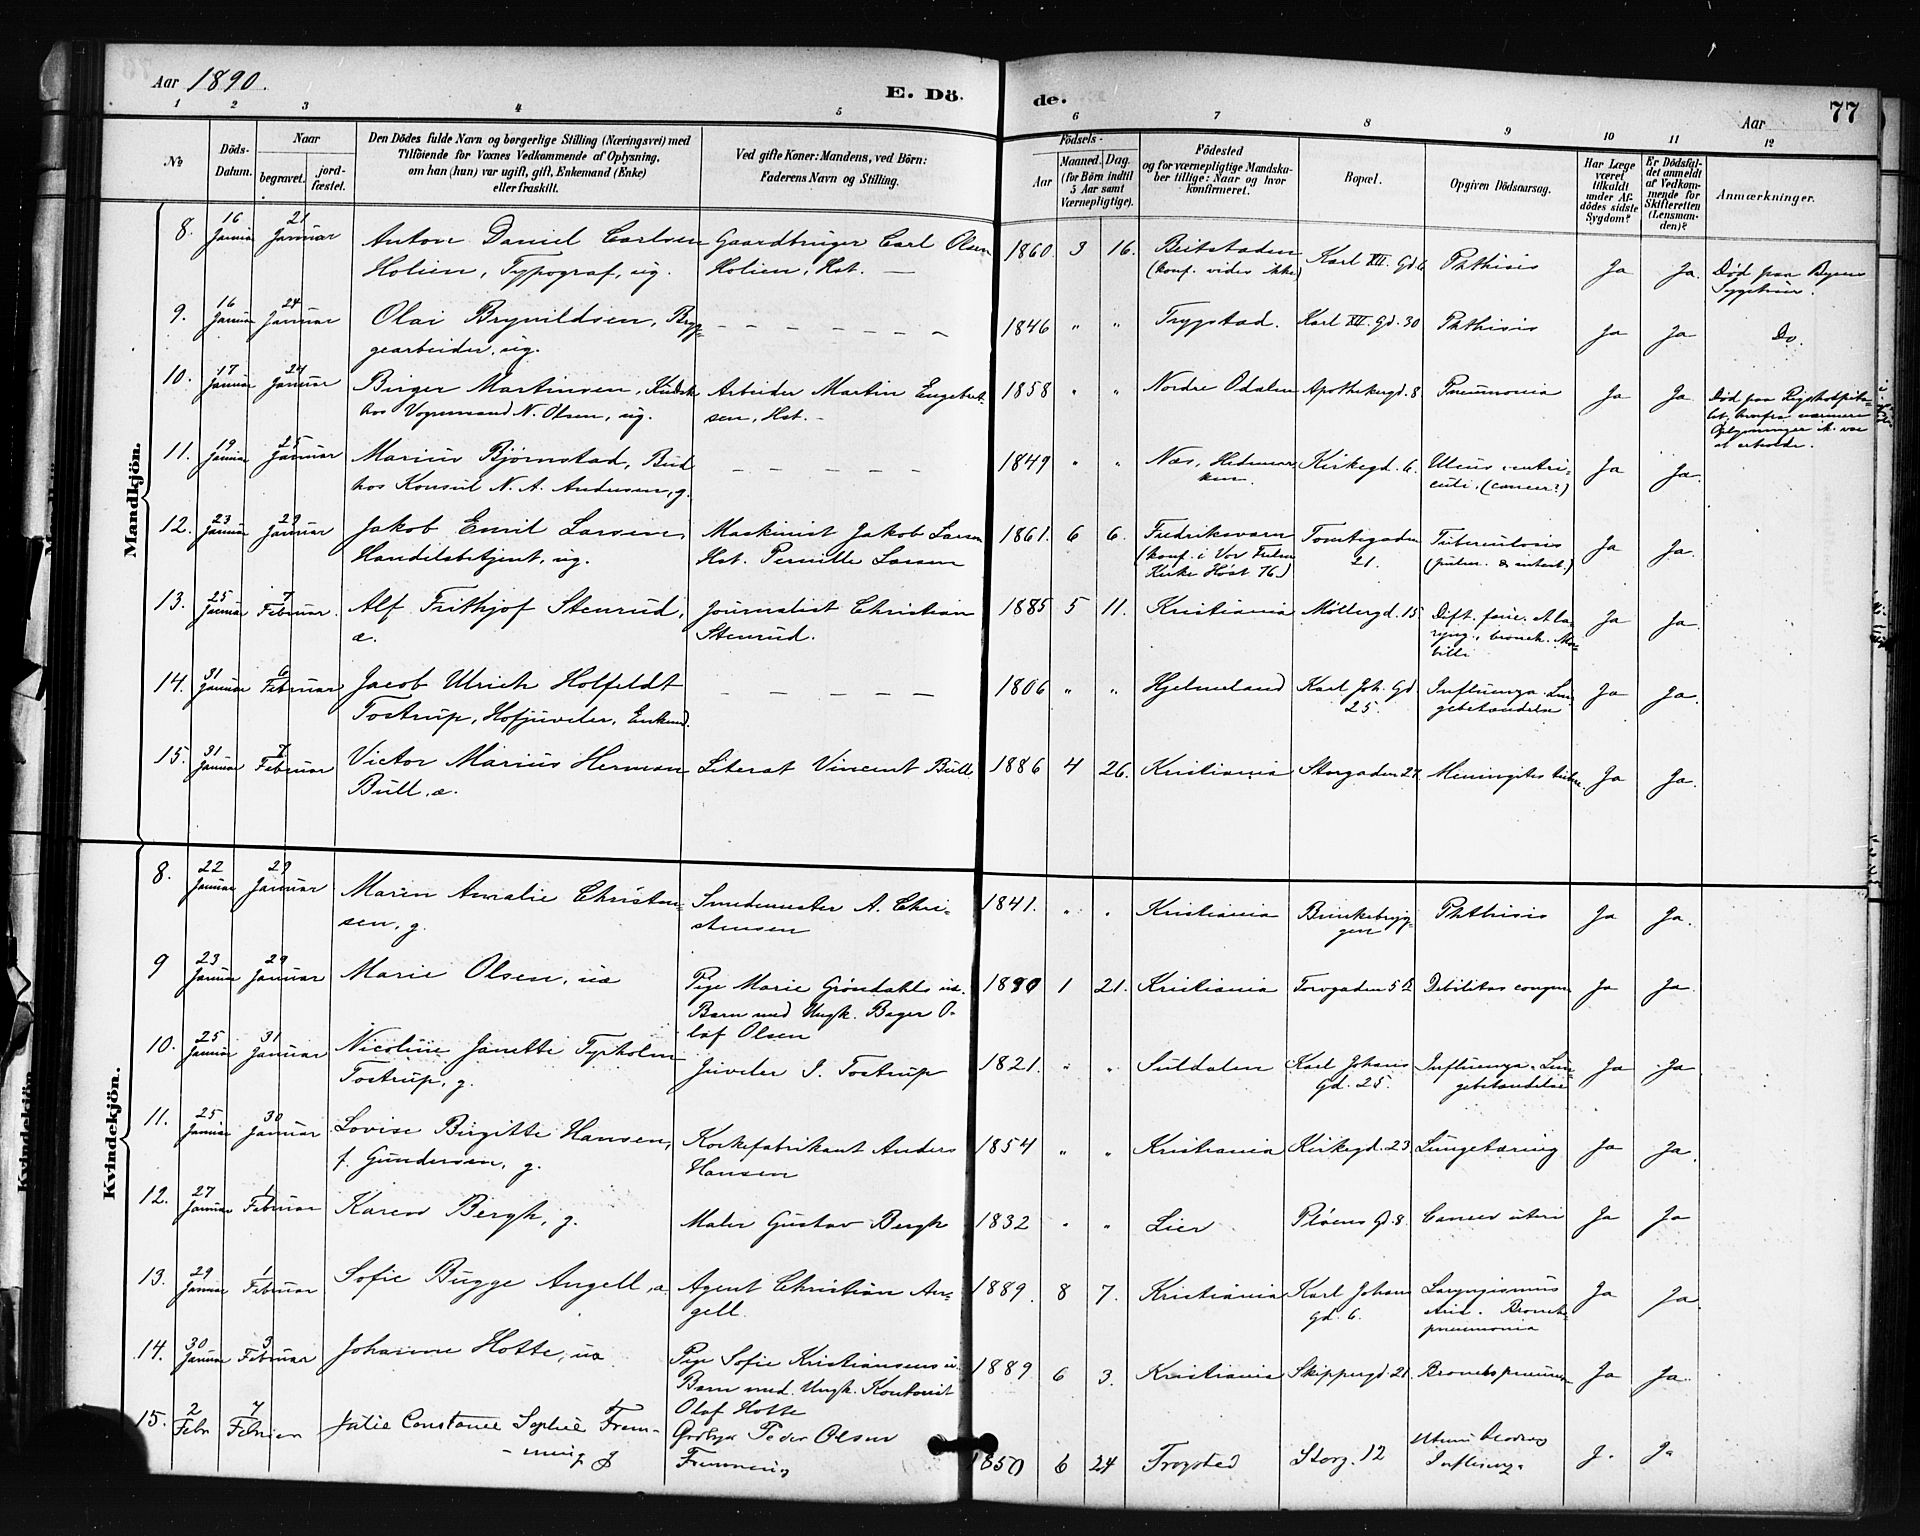 Aar 1890.
E. Dö-
de.
Aar
77
1 2 3 4 5 6 7 8 9 10 11 12
No
Döds-Datum.
Naar
begravet.
jord-fæstet.
Den Dödes fulde Navn og borgerlige Stilling (Næringsvei) med
Tilföiende for Voxnes Vedkommende af Oplysning,
om han (hun) var ugift, gift, Enkemand (Enke)
eller fraskilt.
Ved gifte Koner: Mandens, ved Börn:
Faderens Navn og Stilling.
Födsels-
Aar
Maaned. Dag.
(for Börn indtil
5 Aar samt
Værnepligtige).
Födested
og for værnepligtige Mandska-
ber tillige: Naar og hvor
konfirmeret.
Bopæl.
Opgiven Dödsaarsag.
Har Læge
været
tilkaldt
under Af-
dödes sidste
Sygdom?
Er Dödsfal-
det anmeldt
af Vedkom-
mende for
Skifteretten
(Lensman-
den)?
Anmærkninger.
Mandkjön.
8. 16 Januar 21 Januar Anton Daniel Carlsen Gaardbruger Carl Olsen 1860. 3 16. Beitstaden Karl XII. Gd. 6 Phthisis Ja Ja. Død paa Byens
Holien, Typograf, ug. Holien, Hst. — (konf. vides ikke) Sygehuus.
9. 16 Januar 24 Januar Olai Brynildsen, Bryg- — — — — — — — 1846 " " Trygstad. Karl XII. Gd. 30 Phthisis Ja Ja Do.
gearbeider, ug.
10. 17 Januar 24 Januar Birger Martinsen, Kudsk Arbeider Martin Engebret- 1858 " " Nordre Odalen Apothekergd. 8 Pneumonia Ja Ja Død paa Rigshospita-
hos Vognmand N. Olsen, ug. sen, Hst. — let, hvorfra nærmere
Oplysninger ik. var
at erholde.
11. 19 Januar 25 Januar Marius Bjørnstad, Bud — — — — — 1849 " " Næs, Hedemar- Kirkegd. 6. Ulcus ventri- Ja Ja.
hos Konsul N. A. Andresen, g. ken. culi. (cancer?)
12. 23 Januar 29 Januar Jakob Emil Larsen Maskinist Jakob Larsen 1861. 6 6. Fredriksværn Tomtegaden Tuberculosis Ja Ja.
Handelsbetjent, ug. Hst. Pernille Larsen (konf. i Vor Frelsers 21. (pulm. & intest.)
Kirke Høst 76)
13. 25 Januar 7 Februar. Alf Frithjof Stenrud, Journalist Christian 1885 5 11. Kristiania Møllergd. 15. Dift. fauc. et la- Ja Ja.
æ. Stenrud. ryng., bronch. Mor-
billi
14. 31 Januar 6 Februar Jacob Ulrich Holfeldt — — — — — 1806 " " Hjelmeland Karl Joh. Gd. Influenza. Lun- Ja Ja.
Tostrup, Hofjuveler, Enkemd. 25 gebetændelse
15. 31 Januar 7 Februar Victor Marius Herman Literat Vincent Bull 1886 4 26. Kristiania Storgaden 27 Meningites tuber. Ja Ja.
Bull, æ.
Kvindekjön.
8. 22 Januar 29 Januar Maren Amalie Christen- Smedemester A. Chri- 1841. " " Kristiania Brinkebryg- Phthisis Ja Ja.
sen, g. stensen gen
9 23 Januar 29 Januar Marie Olsen, uæ Pige Marie Grøndahls uæ. 1890 1 21. Kristiania Torvgaden 5 b Debilitas congen. Ja Ja.
Barn med Ungk. Bager O-
laf Olsen
10. 25 Januar 31 Januar Nicoline Janette Tyrholm Juveler J. Tostrup 1821. " " Suldalen Karl Johans Influenza. Lun- Ja Ja
Tostrup, g. Gd. 25. gebetændelse
11. 25 Januar 30 Januar Lovise Birgitte Hansen, Korkefabrikant Anders 1854 " " Kristiania Kirkegd. 23 Lungetæring Ja Ja.
f. Gundersen, g. Hansen
12. 27 Januar 1 Februar Karen Bergh, g. Maler Gustav Bergh 1832 " " Lier Pløens G. 8. Cancer uteri Ja Ja
13. 29 Januar 1 Februar Sofie Bugge Angell, æ Agent Christian An- 1889. 8 7. Kristiania Karl Johans Laryngismus Ja Ja.
gell. Gd. 6. strid. Bronch-
pneumonia
14. 30 Januar 3 Februar Johanne Hotte, uæ Pige Sofie Kristiansens u. 1889 6 3. Kristiania Skippergd. 21 Bronchopneumon. Ja Ja.
Barn med Ungk. Kontorist
Olaf Hotte
15. 2 Febr 7 Februar Julie Constance Sophie Frem- Peder Olsen 1850 6 24 Trøgsted Storg. 12 Ja Ja
ming g Fremming Influenza